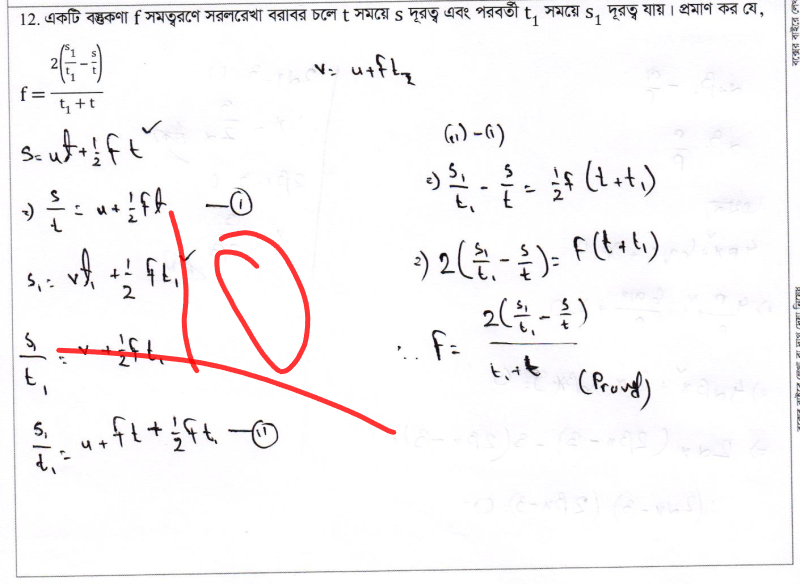 12. একটি বস্তুকণা f সমত্বরণে সরলরেখা বরাবর চলে t সময়ে s দূরত্ব এবং পরবর্তী t₁ সময়ে s₁ দূরত্ব যায়। প্রমাণ কর যে,
f = 2(s₁/t₁ - s/t) / t₁ + t
v = u + ft
s = ut + ½ f t ✓
⇒) s/t = u + ½ ft — (i)
s₁ = vt₁ + ½ ft₁ ✓
s₁/t₁ = v + ½ ft₁
s₁/t₁ = u + ft + ½ ft₁ — (ii)
(ii) - (i)
⇒) s₁/t₁ - s/t = ½ f (t + t₁)
⇒) 2(s₁/t₁ - s/t) = f (t + t₁)
∴ f = 2(s₁/t₁ - s/t) / t₁ + t
(Proved)